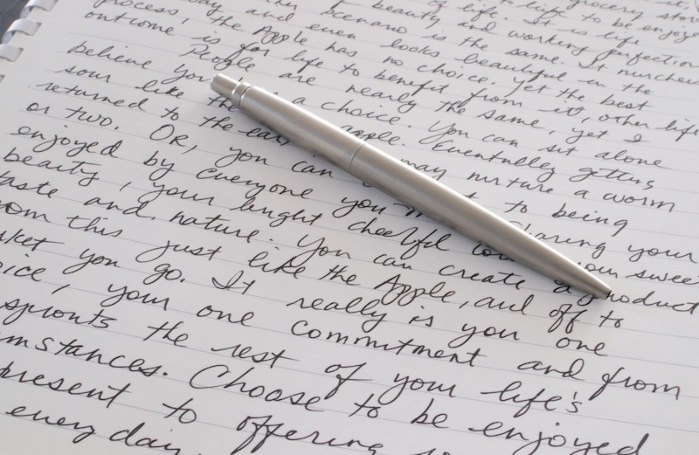 grocery store
of life. It is life
beauty and working perfection
Scenario is the same. It
process, the Apple has no choice. Yet the best
and even looks beautiful in the
outcome is for life to benefit from it, other life
believe you a choice. You can sit alone
People are nearly the same, yet I
sour like the apple. Eventually getting
returned to the may nurture a worm
or two. Or, you can to being
enjoyed by everyone you sharing your
beauty, your bright cheerful your sweet
taste and nature. You can create a product
from this just like the Apple, and off to
you go. It really is you one
choice, your one commitment and from
sprouts the rest of your life's
Choose to be enjoyed
present to offering
every day.